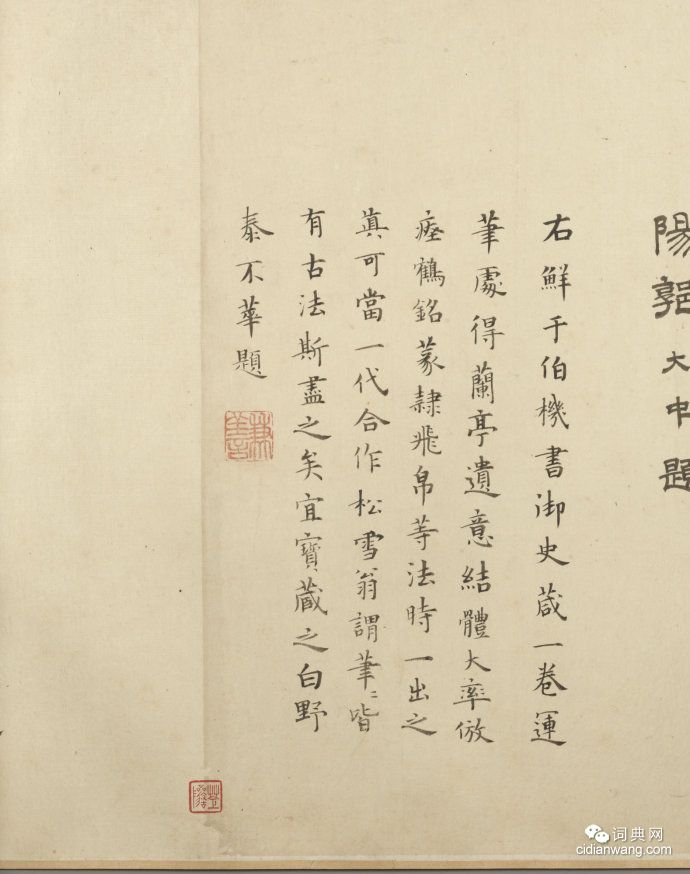 陽郭大中題
右鮮于伯機書御史箴一卷運
筆處得蘭亭遺意結體大率倣
瘞鶴銘篆隸飛帛等法時一出之
真可當一代合作松雪翁謂筆〻皆
有古法斯盡之矣宜寶藏之白野
泰不華題
兼善
词典网
cidianwang.com